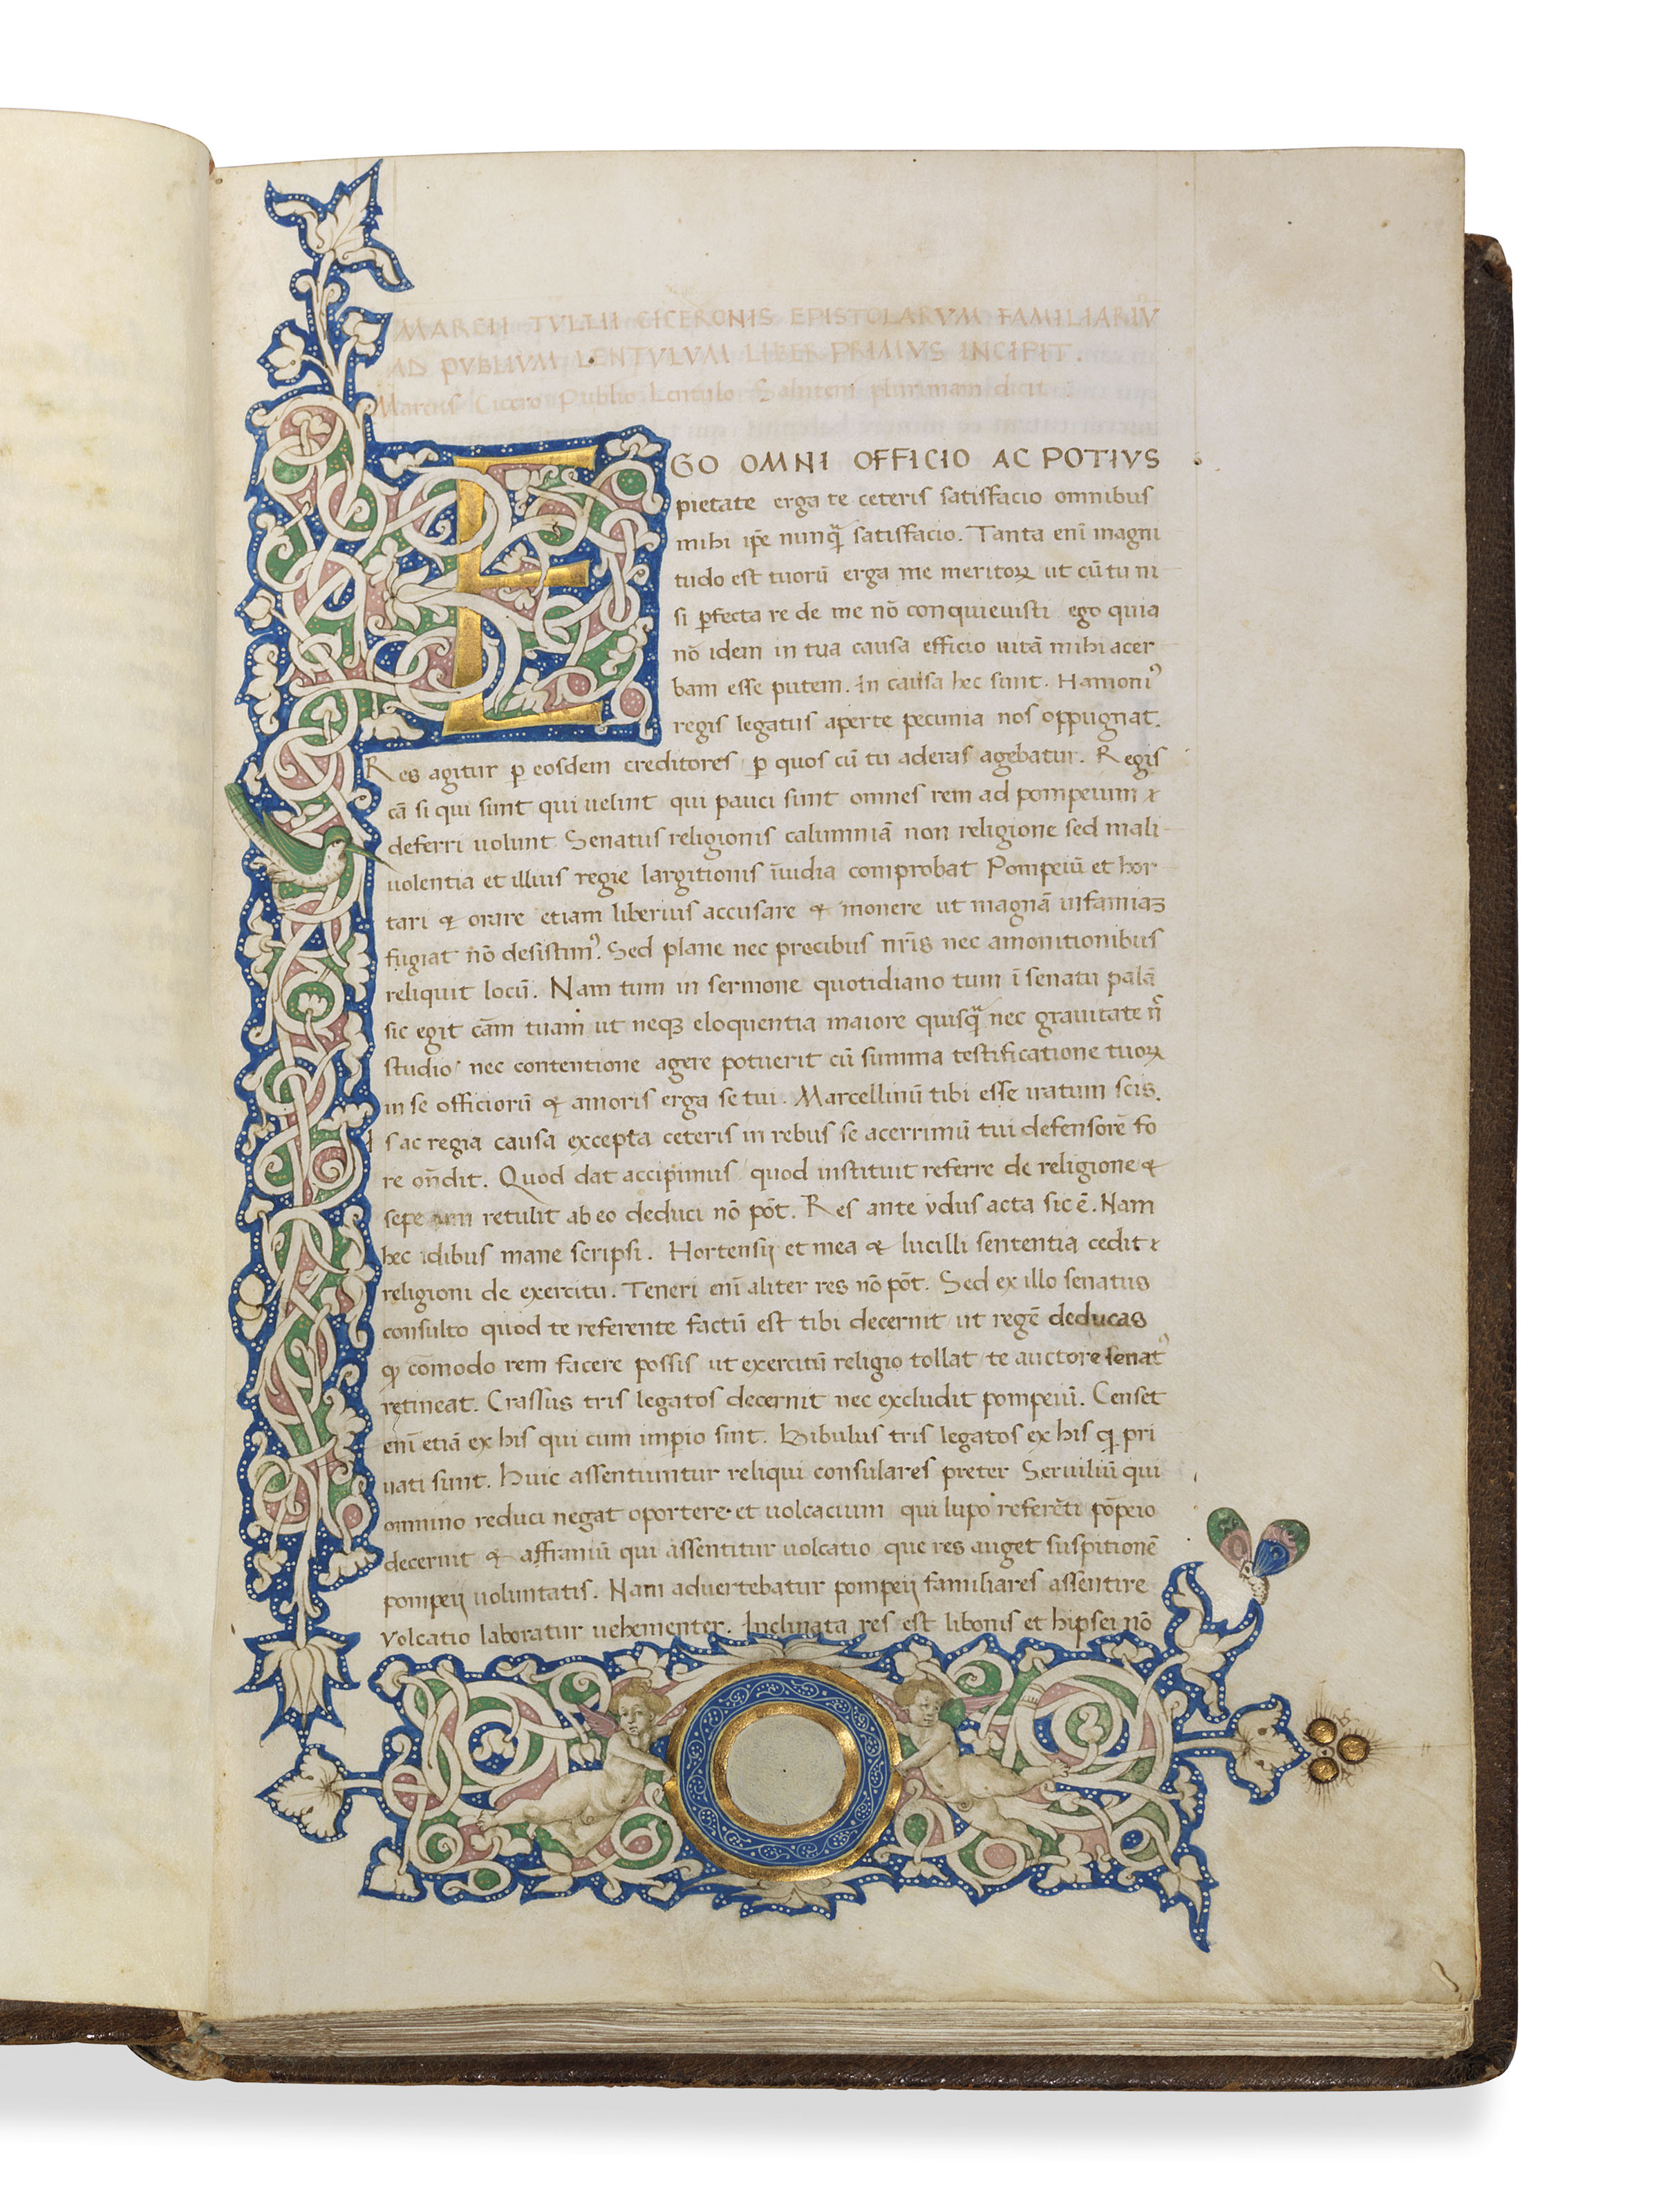 MARCII TVLLII CICERONIS EPISTOLARVM FAMILIARIŪ
AD PVBLIVM LENTVLVM LIBER PRIMVS INCIPIT.
Marcus Cicero Publio Lentulo Salutem plurimam dicit.
EGO OMNI OFFICIO AC POTIVS
pietate erga te ceteris satisfacio omnibus
mihi ip̄e nunq̄ satisfacio. Tanta enī magni
tudo est tuorū erga me meritoꝝ ut cū tu ni
si ꝑfecta re de me nō conquieuisti ego quia
nō idem in tua causa efficio uitā mihi acer
bam esse putem. In causa hec sunt. Hamoniꝰ
regis legatus aperte pecunia nos oppugnat.
Res agitur ꝑ eosdem creditores ꝑ quos cū tu aderas agebatur. Regis
cā si qui sunt qui uelint qui pauci sunt omnes rem ad pompeium
deferri uolunt Senatus religionis calumniā non religione sed mali
uolentia et illius regie largitionis īuidia comprobat Pompeiū et hor
tari & orare etiam liberius accusare & monere ut magnā infamiaꝫ
fugiat nō desistimꝰ. Sed plane nec precibus nr̄is nec amonitionibus
reliquit locū. Nam tum in sermone quotidiano tum ī senatu palā
sic egit cām tuam ut neqꝫ eloquentia maiore quisq̄ nec grauitate
studio nec contentione agere potuerit cū summa testificatione tuoꝝ
in se officiorū & amoris erga se tui. Marcellinū tibi esse iratum scis.
Is ac regia causa excepta ceteris in rebus se acerrimū tui defensorē fo
re on̄dit. Quod dat accipimus quod instituit referre de religione &
sepe iam retulit ab eo deduci nō pōt. Res ante ydus acta sic ē. Nam
hec idibus mane scripsi. Hortensij et mea & lucilli sententia cedit
religioni de exercitu. Teneri enī aliter res nō pōt. Sed ex illo senatus
consulto quod te referente factū est tibi decernit ut regē deducas
ꝙ cōmodo rem facere possis ut exercitū religio tollat te auctore senatꝰ
retineat. Crassus tris legatos decernit nec excludit pompeiū. Censet
enī etiā ex his qui cum imꝑio sint. Bibulus tris legatos ex his q̄ pri
uati sunt. Huic assentiuntur reliqui consulares preter Seruiliū qui
omnino reduci negat oportere et uolcacium qui lupo referēti pōpeio
decernit & affraniū qui assentitur uolcatio que res auget suspitionē
pompeij uoluntatis. Nam aduertebatur pompeij familiares assentire
volcatio laboratur uehementer. Inclinata res est libonis et hipsei nō